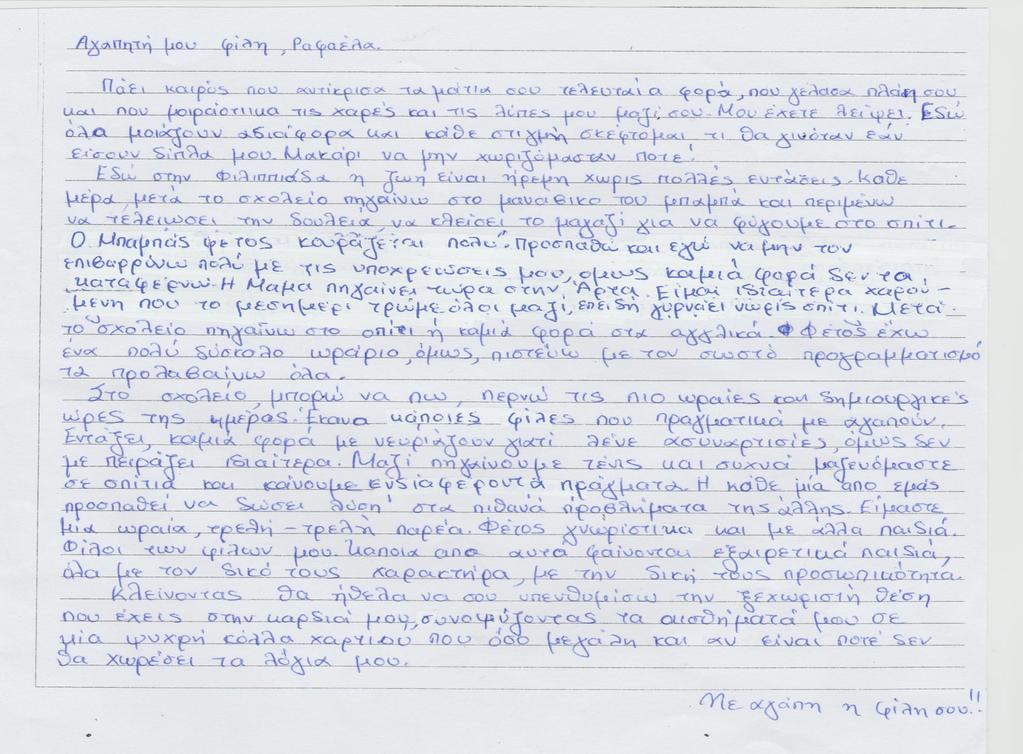 Αγαπητή μου φίλη, Ραφαέλα.
Πάει καιρός που αντίκρισα τα μάτια σου τελευταία φορά, που γέλασα πλάη σου
και που μοιράστικα τις χαρές και τις λύπες μου μαζί σου. Μου έχετε λείψει. Εδώ
όλα μοιάζουν αδιάφορα και κάθε στιγμή σκέφτομαι τι θα γινόταν εάν
είσουν δίπλα μου. Μακάρι να μην χωριζόμασταν ποτέ!
Εδώ στην Φιλιππιάδα η ζωή είναι ήρεμη χωρίς πολλές εντάσεις. Κάθε
μέρα, μετά το σχολείο πηγαίνω στο μανάβικο του μπαμπά και περιμένω
να τελειώσει την δουλειά, να κλείσει το μαγαζί για να φύγουμε στο σπίτι.
Ο Μπαμπάς φέτος κουράζεται πολύ. Προσπαθώ και εγώ να μην τον
επιβαρρύνω πολύ με τις υποχρεώσεις μου, όμως καμιά φορά δεν τα
καταφέρνω. Η Μαμά πηγαίνει τώρα στην Άρτα. Είμαι ιδιαίτερα χαρού-
μενη που το μεσημέρι τρώμε όλοι μαζί, επειδή γυρνάει νωρίς σπίτι. Μετά
το σχολείο πηγαίνω στο σπίτι ή καμιά φορά στα αγγλικά. Φέτος έχω
ένα πολύ δύσκολο ωράριο, όμως, πιστεύω με τον σωστό προγραμματισμό
τα προλαβαίνω όλα.
Στο σχολείο, μπορώ να πω, περνώ τις πιο ωραίες και δημιουργικές
ώρες της ημέρας. Έκανα κάποιες φίλες που πραγματικά με αγαπούν.
Εντάξει, καμιά φορά με νευριάζουν γιατί λένε ασυναρτισίες, όμως δεν
με πειράζει ιδιαίτερα. Μαζί πηγαίνουμε τένις και συχνά μαζευόμαστε
σε σπίτια και κάνουμε ενδιαφέροντα πράγματα. Η κάθε μία από εμάς
προσπαθεί να δώσει λύση στα πιθανά προβλήματα της άλλης. Είμαστε
μία ωραία, τρελή-τρελή παρέα. Φέτος γνωρίστικα και με άλλα παιδιά.
Φίλοι των φίλων μου. Κάποια από αυτά φαίνονται εξαιρετικά παιδιά,
όλα με τον δικό τους χαρακτήρα, με την δική τους προσωπικότητα.
Κλείνοντας θα ήθελα να σου υπενθυμίσω την ξεχωριστή θέση
που έχεις στην καρδιά μου, συνοψίζοντας τα αισθήματά μου σε
μία ψυχρή κόλλα χαρτιού που όσο μεγάλη και αν είναι ποτέ δεν
θα χωρέσει τα λόγια μου.
Με αγάπη η φίλη σου!!